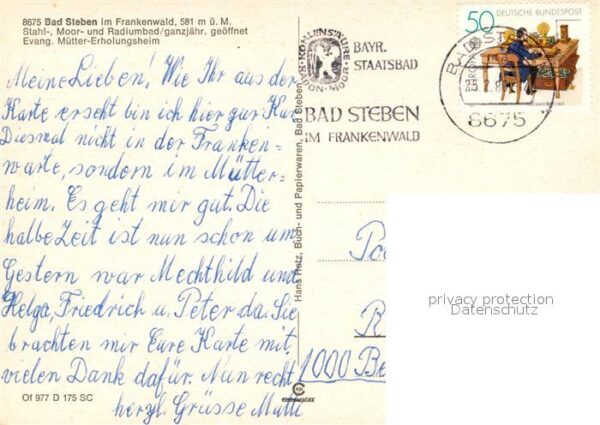 8675 Bad Steben im Frankenwald, 581 m ü. M.
Stahl-, Moor- und Radiumbad/ganzjähr. geöffnet
Evang. Mütter-Erholungsheim
Meine Lieben! Wie Ihr aus der
Karte erseht bin ich hier zur Kur
Diesmal nicht in der Franken-
warte, sondern im Mütter-
heim. Es geht mir gut. Die
halbe Zeit ist nun schon um
Gestern war Mechthild und
Helga, Friedrich u. Peter da. Sie
brachten mir Eure Karte mit,
vielen Dank dafür. Nun recht
herzl. Grüsse Mutti
Of 977 D 175 SC
Hans Hotz, Buch- und Papierwaren, Bad Steben
RADON-MOOR-KOHLENSÄURE
BAYR.
STAATSBAD
BAD STEBEN
IM FRANKENWALD
50 DEUTSCHE BUNDESPOST
8675
privacy protection
Datenschutz
1000 Be